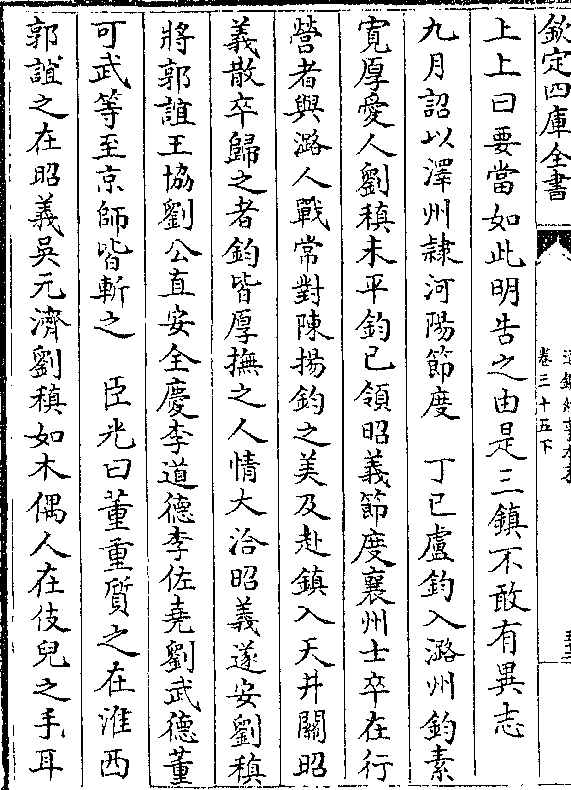 欽定四庫全書
卷三十五下
上上曰要當如此明告之由是三鎮不敢有異志
九月詔以澤州隸河陽節度　丁巳盧鈞入潞州鈞素
寛厚愛人劉稹未平鈞已領昭義節度襄州士卒在行
營者與潞人戰常對陳揚鈞之美及赴鎮入天井關昭
義散卒歸之者鈞皆厚撫之人情大洽昭義遂安劉稹
將郭誼王協劉公直安全慶李道德李佐堯劉武德董
可武等至京師皆斬之　臣光曰董重質之在淮西
郭誼之在昭義吳元濟劉稹如木偶人在伎兒之手耳